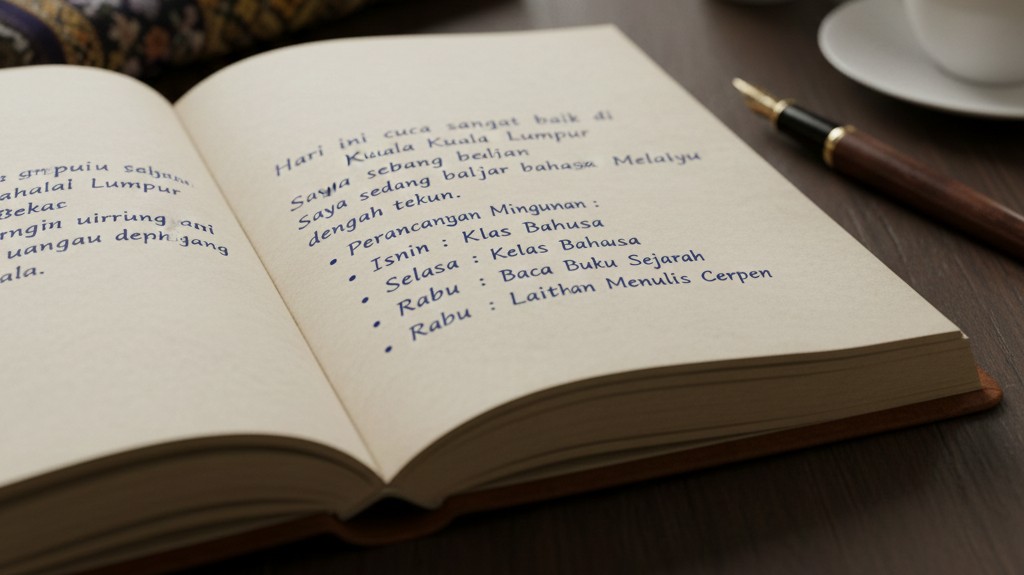 ahalai Lumpur
Bekac
rngin uirrung ani
uangau deph gang
ala.
Hari ini cuca sangat baik di
Kuuala Kuala Lumpur
Sayya sebang beulian
Saya sedang baljar bahasa Melaiyu
dengah tekun.
• Perancanyan Mingunan :
• Isnin : Klas Bahusa
• Selasa : Kelas Bahausa
• Rabu : Baca Buku Sejarah
• Rabu : Laithan Menulis Cerpen